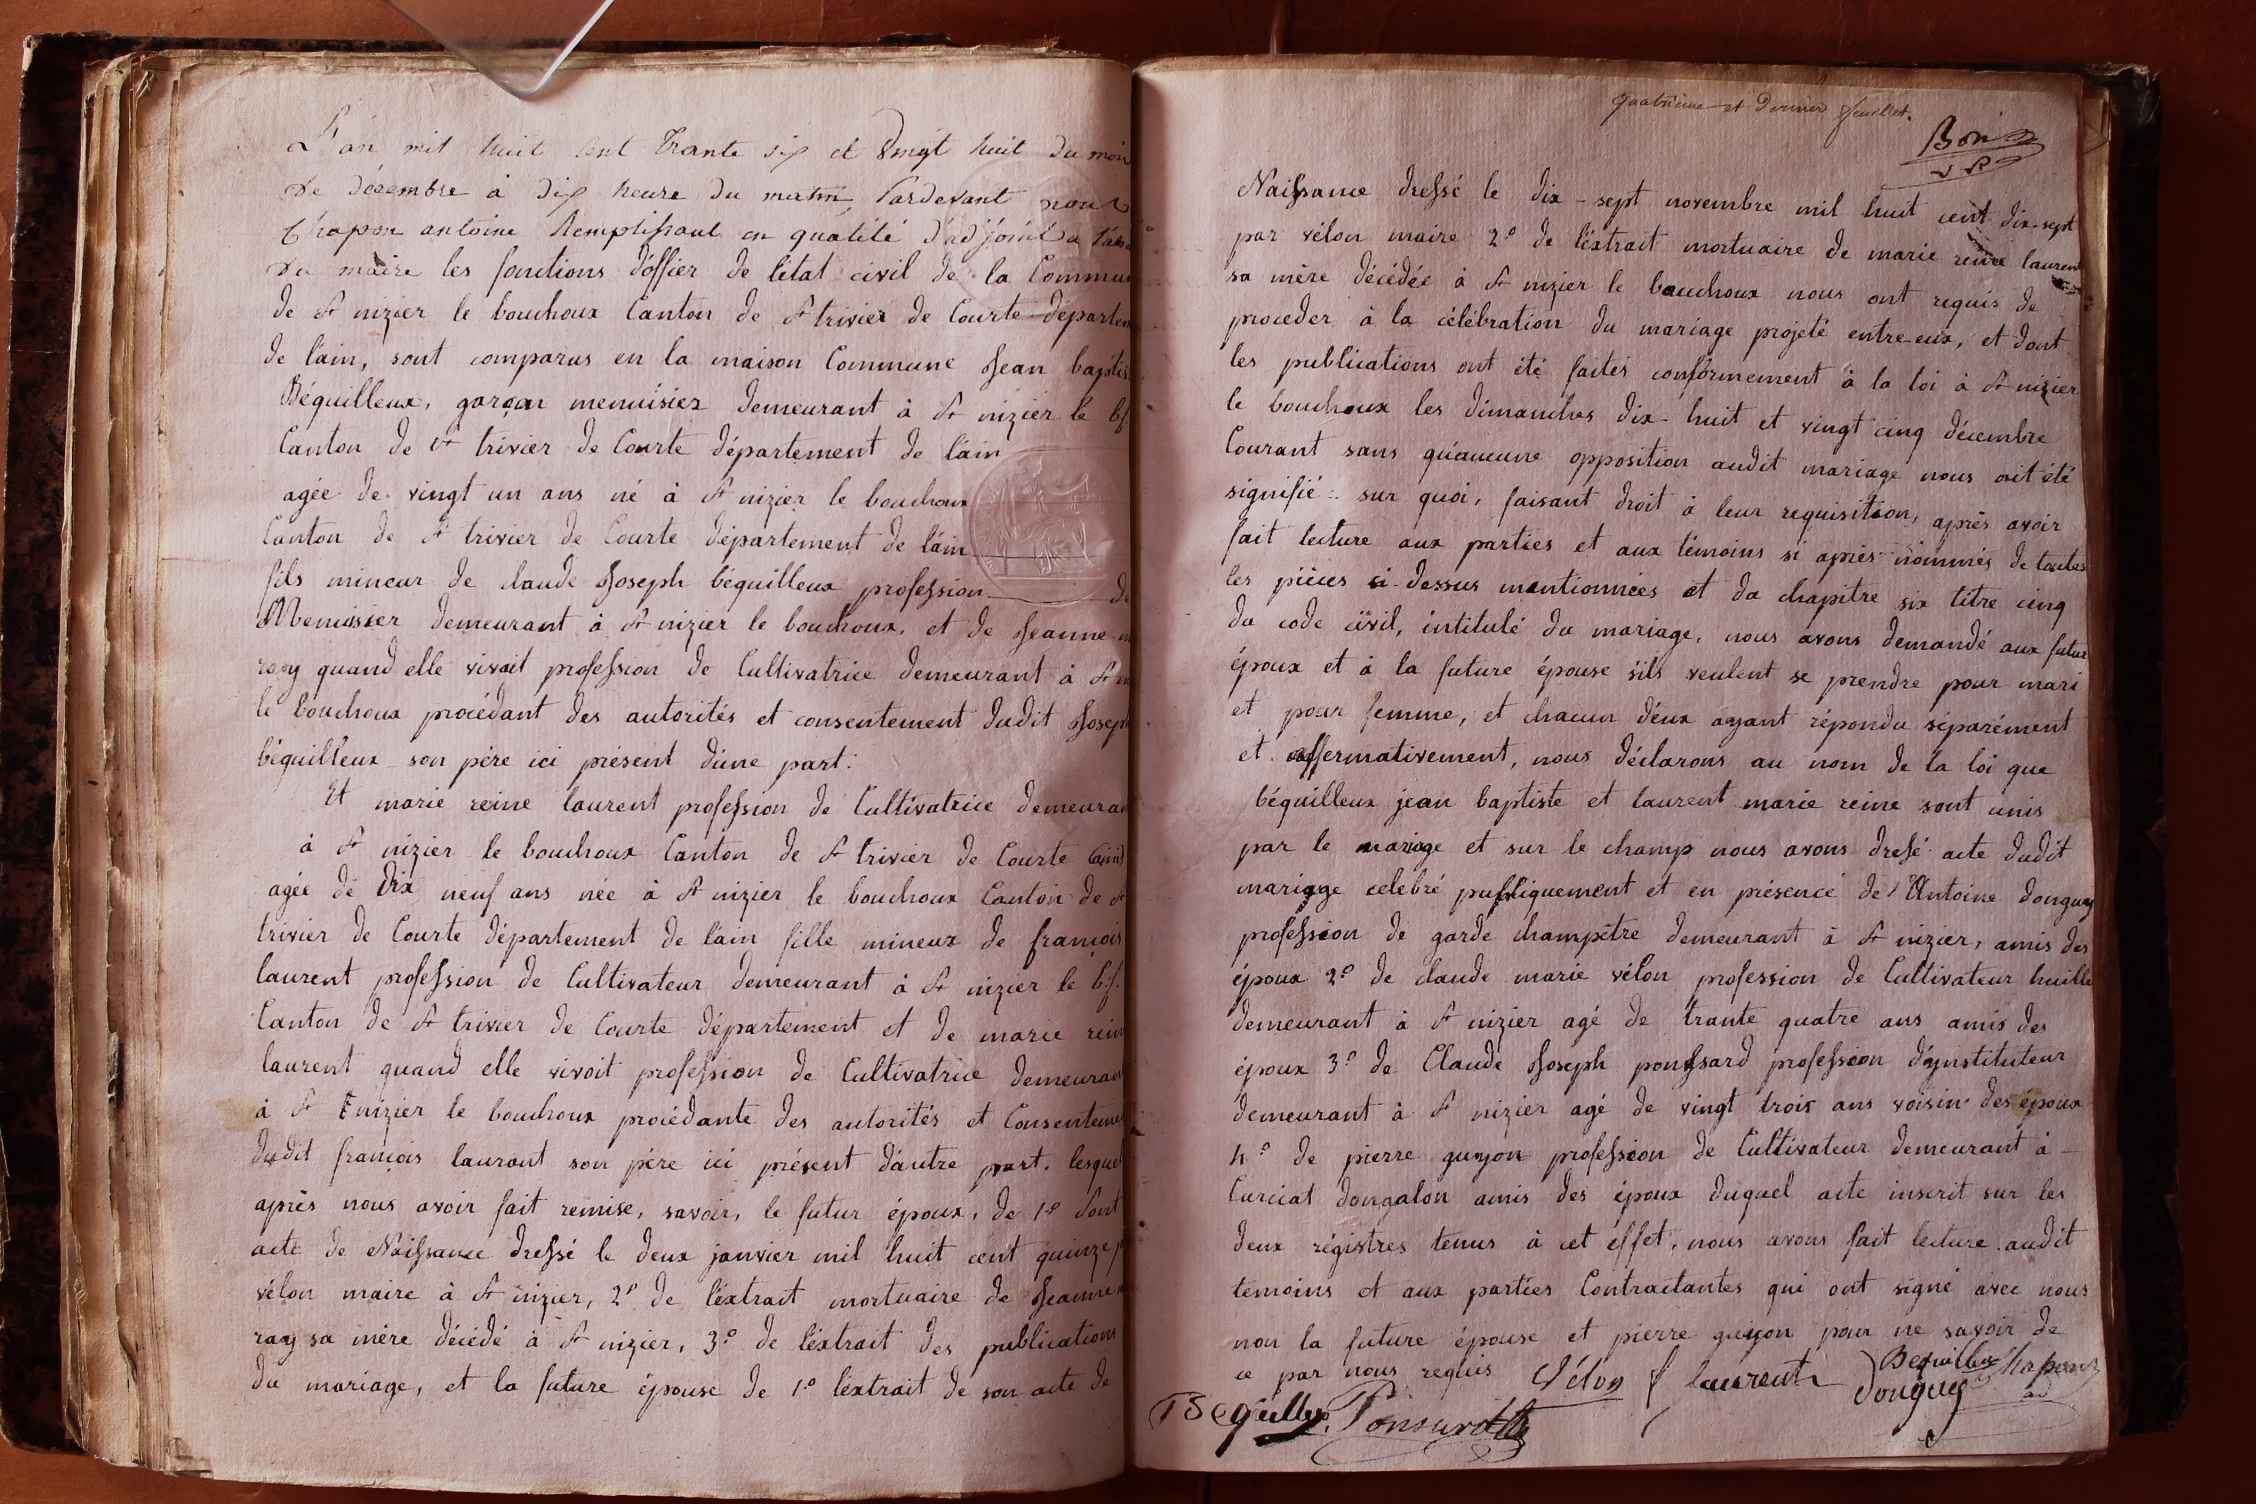 L'an mil huit cent trante six et vingt huit du mois
de décembre à dix heure du matin, Pardevant nous
Chapon antoine Remplissant en qualité d'adjoint a l'abs
du maire les fonctions d'offier de l'état civil de la Commu
de St nizier le bouchoux Canton de St trivier de Courte départem
de l'ain, sont comparus en la maison Commune Jean baptis
Béquilleux, garçon menuisier demeurant à St nizier le bf
Canton de St trivier de Courte département de l'ain
agée de vingt un ans né à St nizier le bouchoux
Canton de St trivier de Courte département de l'ain
fils mineur de claude Joseph béquilleux profession de
Menuisier demeurant à St nizier le bouchoux, et de Jeanne m
ray quand elle vivait profession de Cultivatrice demeurant à St ni
le bouchoux procédant des autorités et consentement dudit Joseph
béquilleux son père ici présent d'une part.
Et marie reine laurent profession de Cultivatrice demeuran
à St nizier le bouchoux Canton de St trivier de Courte
agée de dix neuf ans née à St nizier le bouchoux Canton de St
trivier de Courte département de l'ain fille mineux de françois
laurent profession de Cultivateur demeurant à St nizier le bf.
Canton de St trivier de Courte département et de marie rein
laurent quand elle vivoit profession de Cultivatrice demeuran
à St nizier le bouchoux procédante des autorités et Consenteme
dudit françois laurant son père ici présent d'autre part. lesquel
après nous avoir fait remise, savoir, le futur époux, de 1º Sont
acte de Naissance dressé le deux janvier mil huit cent quinze p
vélon maire à St nizier, 2º de l'éxtrait mortuaire de Jeanne m
ray sa mère décédé à St nizier, 3º de l'éxtrait des publications
du mariage, et la future épouse de 1º l'éxtrait de son acte de
quatrième et Dernier feuillet.
Bon
Naissance dressé le dix-sept novembre mil huit cent dix-sept
par vélon maire 2º de l'éxtrait mortuaire de marie reine laurent
sa mère décédée à St nizier le bouchoux nous ont requis de
proceder à la célébration du mariage projeté entre-eux, et dont
les publications ont été faites conformement à la loi à St nizier
le bouchoux les dimanches dix-huit et vingt cinq décembre
Courant sans qu'aucune opposition audit mariage nous ait été
signifié: sur quoi, faisant droit à leur requisition, après avoir
fait lecture aux parties et aux témoins si après nommés de toutes
les pièces ci-dessus mentionnées et du chapitre six titre cinq
du code civil, intitulé du mariage, nous avons demandé aux futur
époux et à la future épouse s'ils veulent se prendre pour mari
et pour femme, et chacun d'eux ayant répondu séparément
et affermativement, nous déclarons au nom de la loi que
béquilleux jean baptiste et laurent marie reine sont unis
par le mariage et sur le champ nous avons dressé acte dudit
mariage celebré publiquement et en présence de 1º Antoine donguy
profession de garde champêtre demeurant à St nizier, amis des
époux 2º de claude marie vélon profession de Cultivateur huille
demeurant à St nizier agé de trante quatre ans amis des
époux 3º de Claude Joseph ponssard profession d'ynstituteur
demeurant à St nizier agé de vingt trois ans voisin des époux
4º de pierre guyon profession de Cultivateur demeurant à
Curciat dongalon amis des époux duquel acte inscrit sur les
deux régistres tenus à cet éffet, nous avons fait lecture audit
temoins et aux parties Contractantes qui ont signé avec nous
non la future épouse et pierre guyon pour ne savoir de
ce par nous requis Vélon f laurent Bequilleux Chapon
Donguy
Bequilleux Ponsard